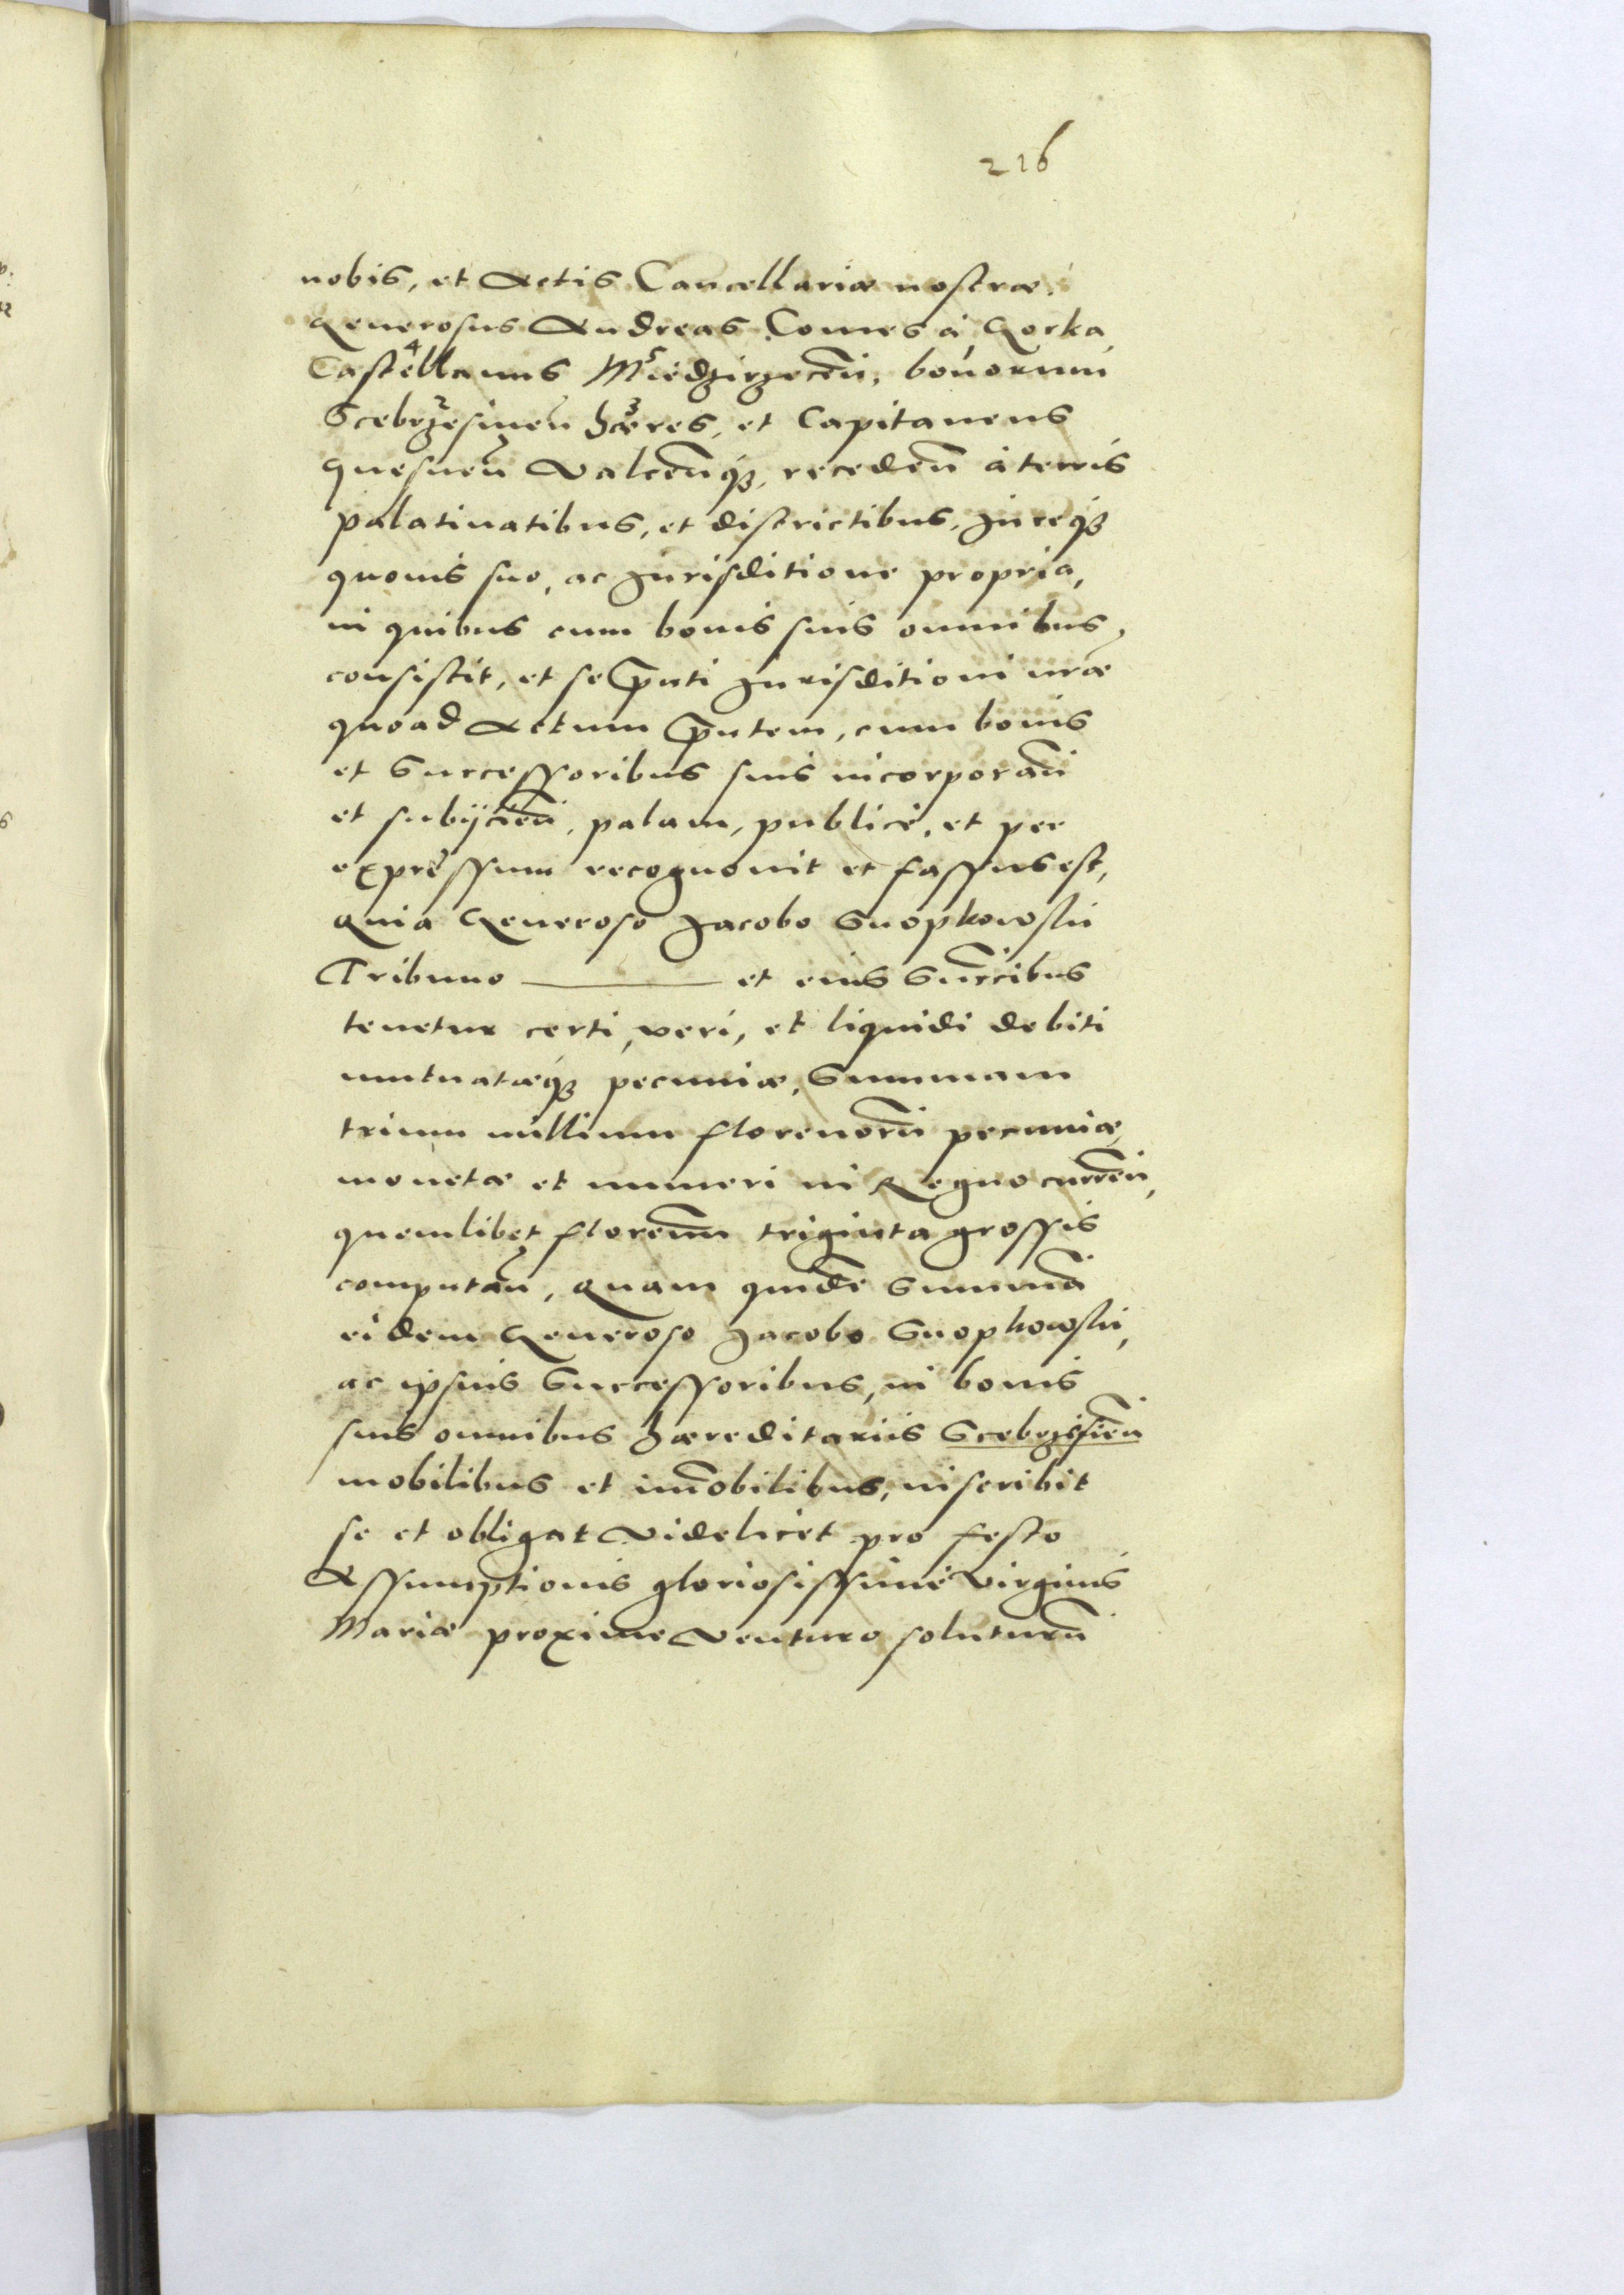 216
nobis, et Actis Cancellariæ nostræ,
Generosus Andreas Comes à Gorka,
Castellanus 4 Miedzirzeceñ 5, bonorum 1
Scebrzesineñ 2 hæres 3, et Capitaneus
Gnesneñ Valceñq3, recedeñ à terris
palatinatibus, et districtibus, Jureq3
quouis suo, ac Jurisditione propria,
in quibus cum bonis suis omnibus,
consistit, et se p̃nti Jurisditioni nr̃æ
quoad Actum p̃ntem, cum bonis
et Successoribus suis incorporañ
et subijcieñ, palam, publicè, et per
expressum recognouit et fassus est,
Quia Generoso Jacobo Snopkowskii
Tribuno ——— et eius Succ̃ibus
tenetur certi, veri, et liquidi debiti
mutuatæq3 pecuniæ, Summam
trium millium florenorũ pecuniæ,
monetæ et numeri in Regno curreñ,
quemlibet floreñum triginta grossis
computañ, Quam quidẽ Summã
eidem Generoso Jacobo Snopkowskii,
ac ipsius Successoribus, in bonis
suis omnibus hæreditariis Scebrzesieñ
mobilibus et im̃obilibus, inscribit
se et obligat Videlicet pro festo
Assumptionis gloriosissimè Virginis
Mariæ proxime Venturo soluturũ